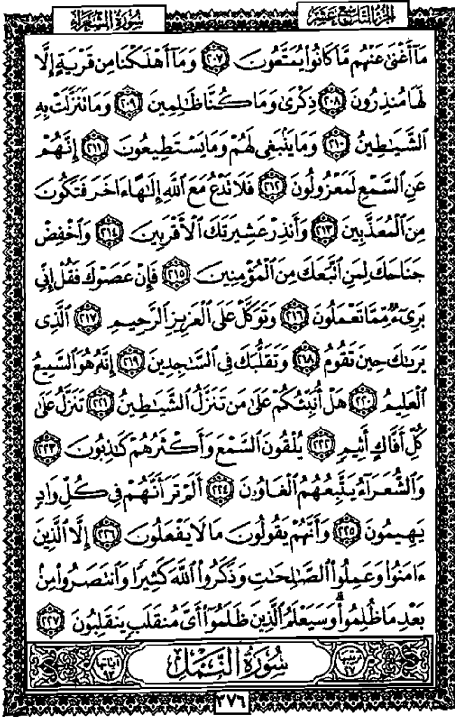 الجزء التاسع عشر سُورَةُ الشُّعَرَاءِ
مَآ أَغْنَىٰ عَنْهُم مَّا كَانُوا۟ يُمَتَّعُونَ ٢٠٧ وَمَآ أَهْلَكْنَا مِن قَرْيَةٍ إِلَّا
لَهَا مُنذِرُونَ ٢٠٨ ذِكْرَىٰ وَمَا كُنَّا ظَـٰلِمِينَ ٢٠٩ وَمَا تَنَزَّلَتْ بِهِ
الشَّيَـٰطِينُ ٢١٠ وَمَا يَنۢبَغِى لَهُمْ وَمَا يَسْتَطِيعُونَ ٢١١ إِنَّهُمْ
عَنِ السَّمْعِ لَمَعْزُولُونَ ٢١٢ فَلَا تَدْعُ مَعَ اللَّهِ إِلَـٰهًا ءَاخَرَ فَتَكُونَ
مِنَ الْمُعَذَّبِينَ ٢١٣ وَأَنذِرْ عَشِيرَتَكَ الْأَقْرَبِينَ ٢١٤ وَاخْفِضْ
جَنَاحَكَ لِمَنِ اتَّبَعَكَ مِنَ الْمُؤْمِنِينَ ٢١٥ فَإِنْ عَصَوْكَ فَقُلْ إِنِّى
بَرِىٓءٌ مِّمَّا تَعْمَلُونَ ٢١٦ وَتَوَكَّلْ عَلَى الْعَزِيزِ الرَّحِيمِ ٢١٧ الَّذِى
يَرَىٰكَ حِينَ تَقُومُ ٢١٨ وَتَقَلُّبَكَ فِى السَّـٰجِدِينَ ٢١٩ إِنَّهُۥ هُوَ السَّمِيعُ
الْعَلِيمُ ٢٢٠ هَلْ أُنَبِّئُكُمْ عَلَىٰ مَن تَنَزَّلُ الشَّيَـٰطِينُ ٢٢١ تَنَزَّلُ عَلَىٰ
كُلِّ أَفَّاكٍ أَثِيمٍ ٢٢٢ يُلْقُونَ السَّمْعَ وَأَكْثَرُهُمْ كَـٰذِبُونَ ٢٢٣
وَالشُّعَرَآءُ يَتَّبِعُهُمُ الْغَاوُۥنَ ٢٢٤ أَلَمْ تَرَ أَنَّهُمْ فِى كُلِّ وَادٍ
يَهِيمُونَ ٢٢٥ وَأَنَّهُمْ يَقُولُونَ مَا لَا يَفْعَلُونَ ٢٢٦ إِلَّا الَّذِينَ
ءَامَنُوا۟ وَعَمِلُوا۟ الصَّـٰلِحَـٰتِ وَذَكَرُوا۟ اللَّهَ كَثِيرًا وَانتَصَرُوا۟ مِنۢ
بَعْدِ مَا ظُلِمُوا۟ ۗ وَسَيَعْلَمُ الَّذِينَ ظَلَمُوٓا۟ أَىَّ مُنقَلَبٍ يَنقَلِبُونَ ٢٢٧
ترتيبها ٢٧ سُورَةُ النَّمْلِ آياتها ٩٣
٣٧٦